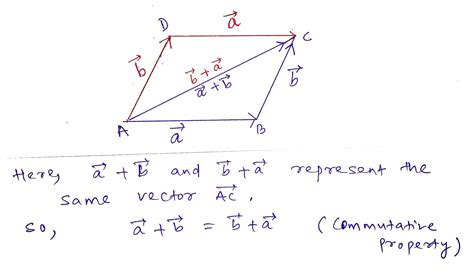 D
a⃗
C
b⃗
b⃗ + a⃗
a⃗ + b⃗
b⃗
A
a⃗
B
Here, a⃗ + b⃗ and b⃗ + a⃗ represent the
same vector A⃗C⃗.
So, a⃗ + b⃗ = b⃗ + a⃗ (Commutative
property)